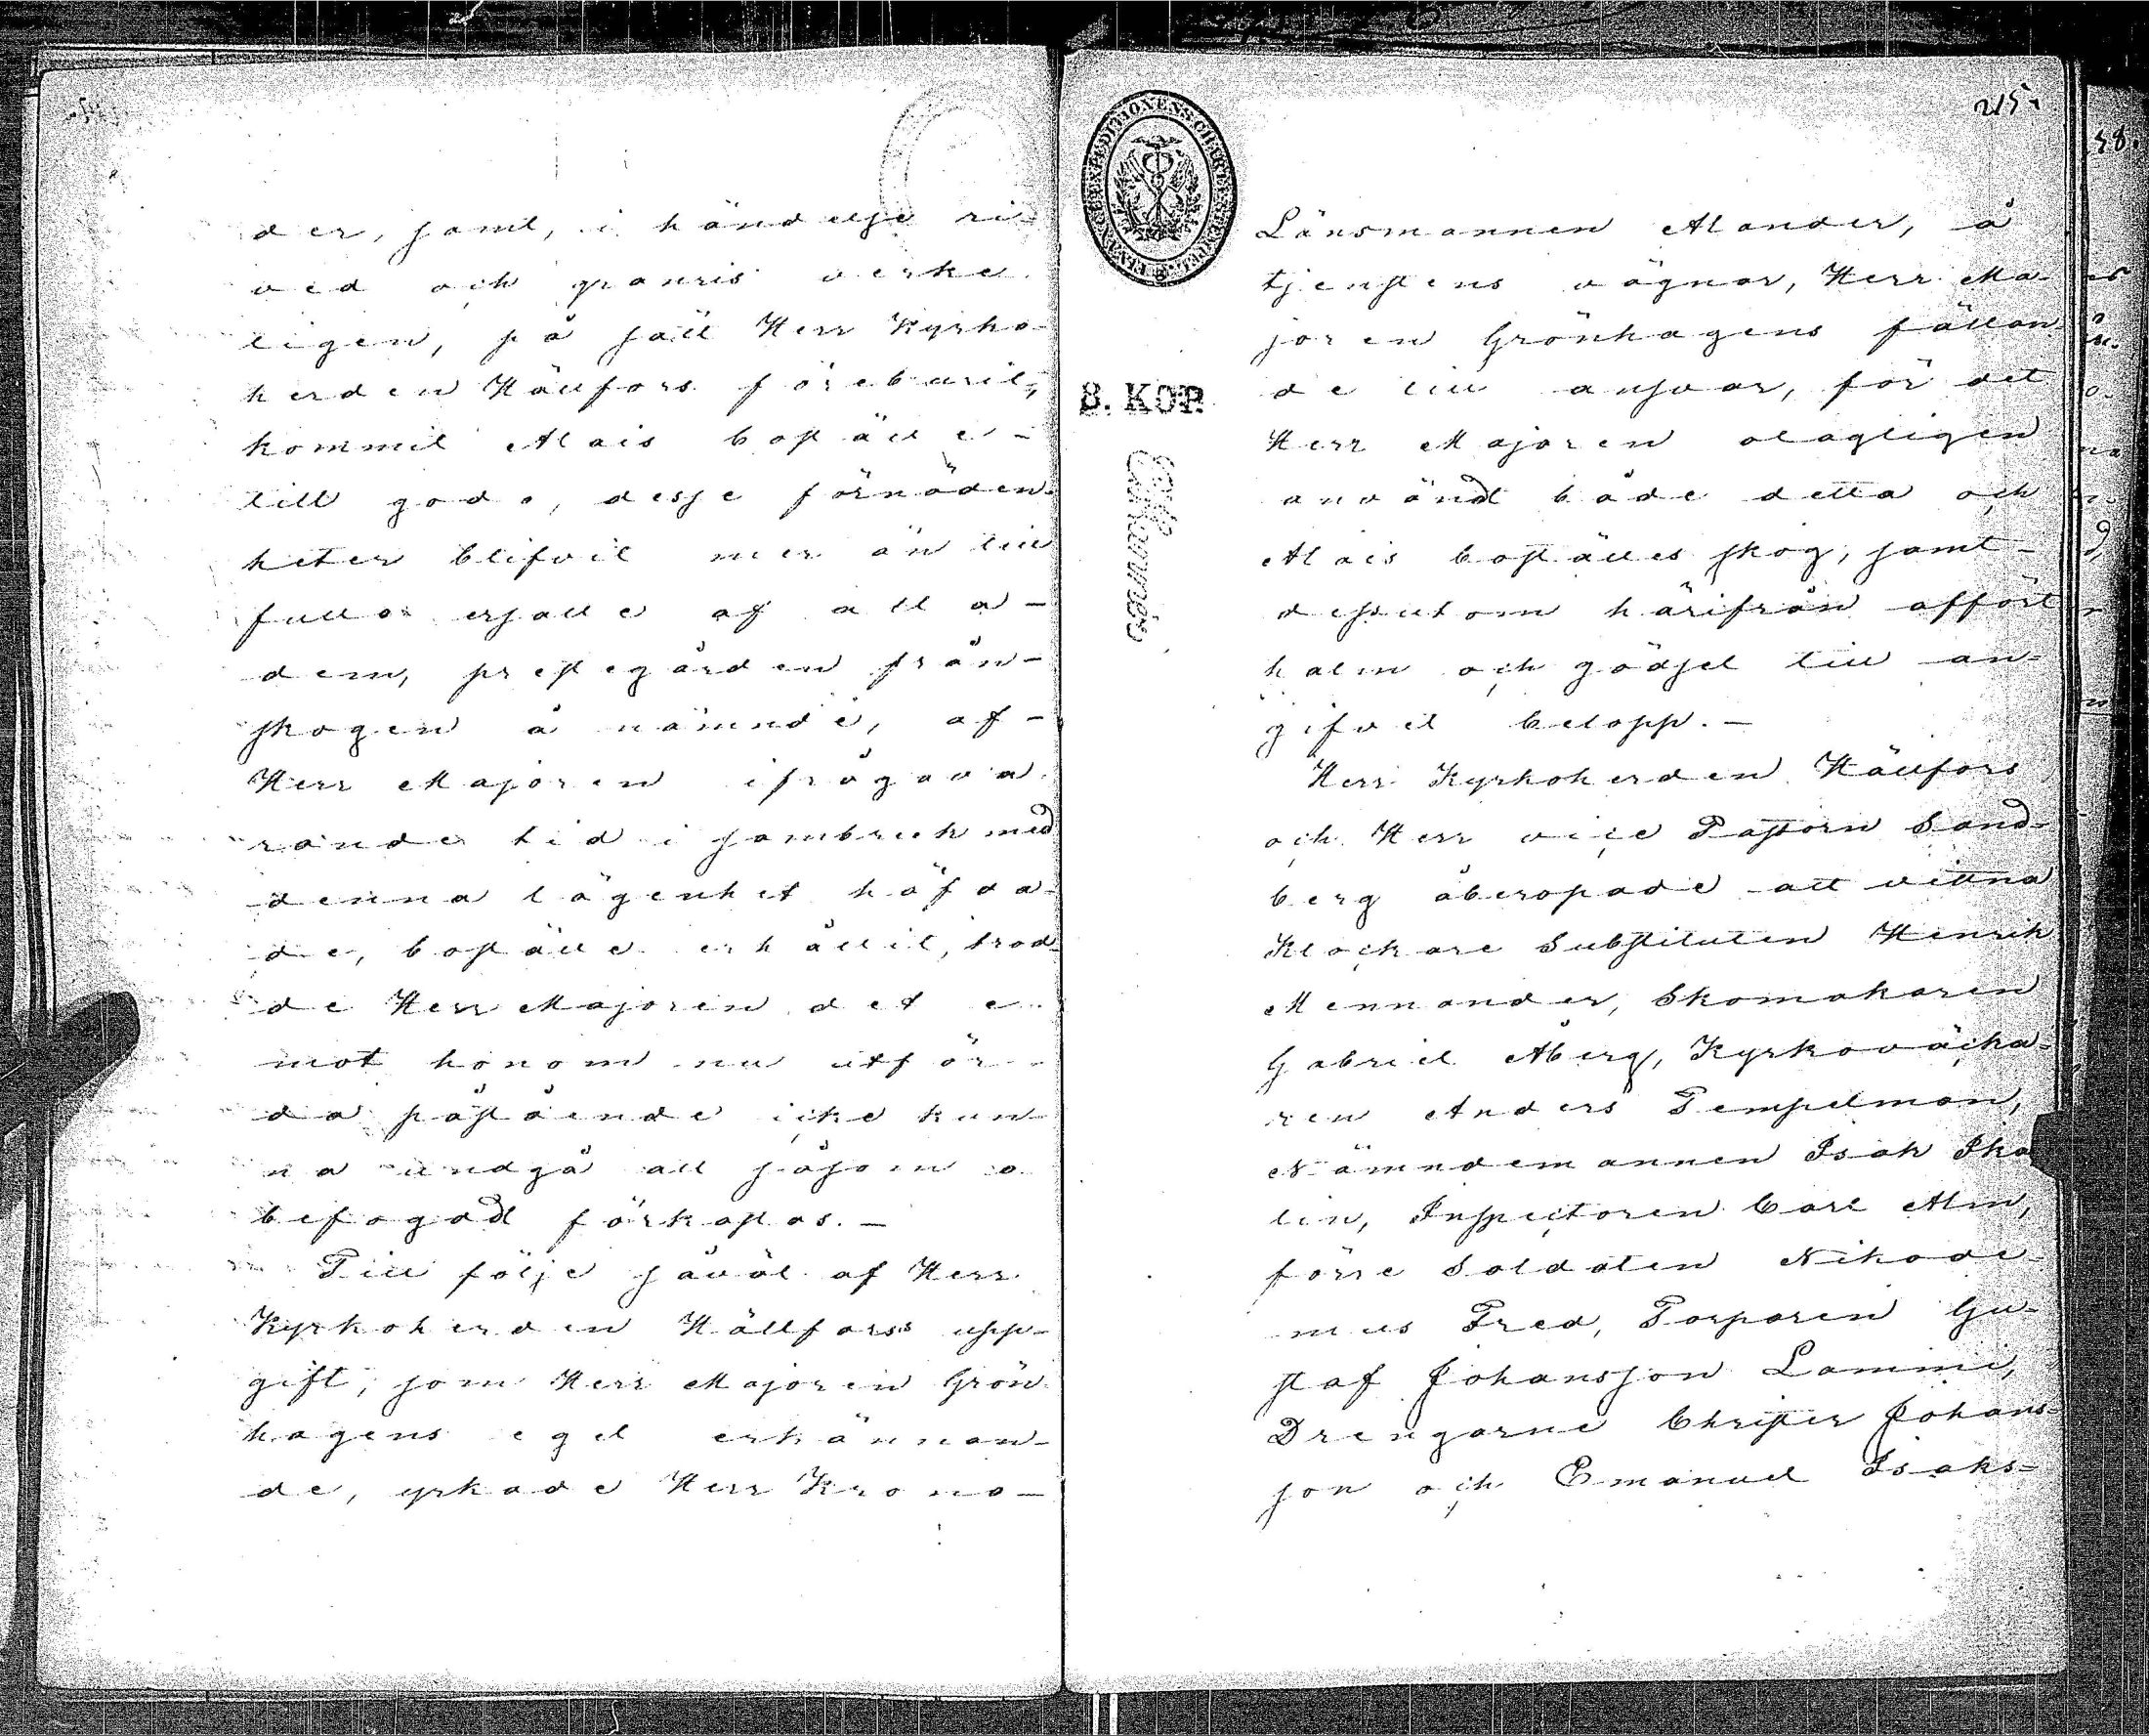 der, samt, i händelse ri-
ved och granris verke-
ligen, på sätt Herr Kyrko-
herden Hällfors föreburit,
kommit Alais boställe
till godo, desse förnöden-
heter blifvit mer än till
fullo ersatte af alla
dem, prestegården från
skogen å nämnde, af
Herr Majoren ifrågava-
rande tid i sambruk med
denna lägenhet häfda-
de, boställe erhållit, trod-
de Herr Majoren det e-
mot honom nu utför-
da påstående icke kun-
na undgå att såsom o-
befogadt förkastas. —
Till följe såväl af Herr
Kyrkoherden Hällforss upp-
gift, som Herr Majoren Grön-
hagens eget erkännan-
de, yrkade Herr Krono-
215.
FINANCE EXPEDITIONENS CHARTÆ STEMPEL
8. KOP.
Länsmannen Alander, å
tjenstens vägnar, Herr Ma-
joren Grönhagens fällan-
de till ansvar, för det
Herr Majoren olagligen
användt både detta och
Alais boställes skog, samt
dessutom härifrån affört
halm och gödsel till an-
gifvet belopp. —
Herr Kyrkoherden Hällfors
och Herr vice Pastorn Sand-
berg åberopade att vittna
Klockare Substituten Henrik
Mennander, Skomakaren
Gabriel Åberg, Kyrkoväcka-
ren Anders Tempelman,
Nämndemannen Isak Ika-
lin, Inspectoren Carl Alm,
förre Soldaten Nikode-
mus Fred, Torparen Gu-
staf Johansson Lammi,
Drengarne Christer Johans-
son och Emanuel Isaks-
58.